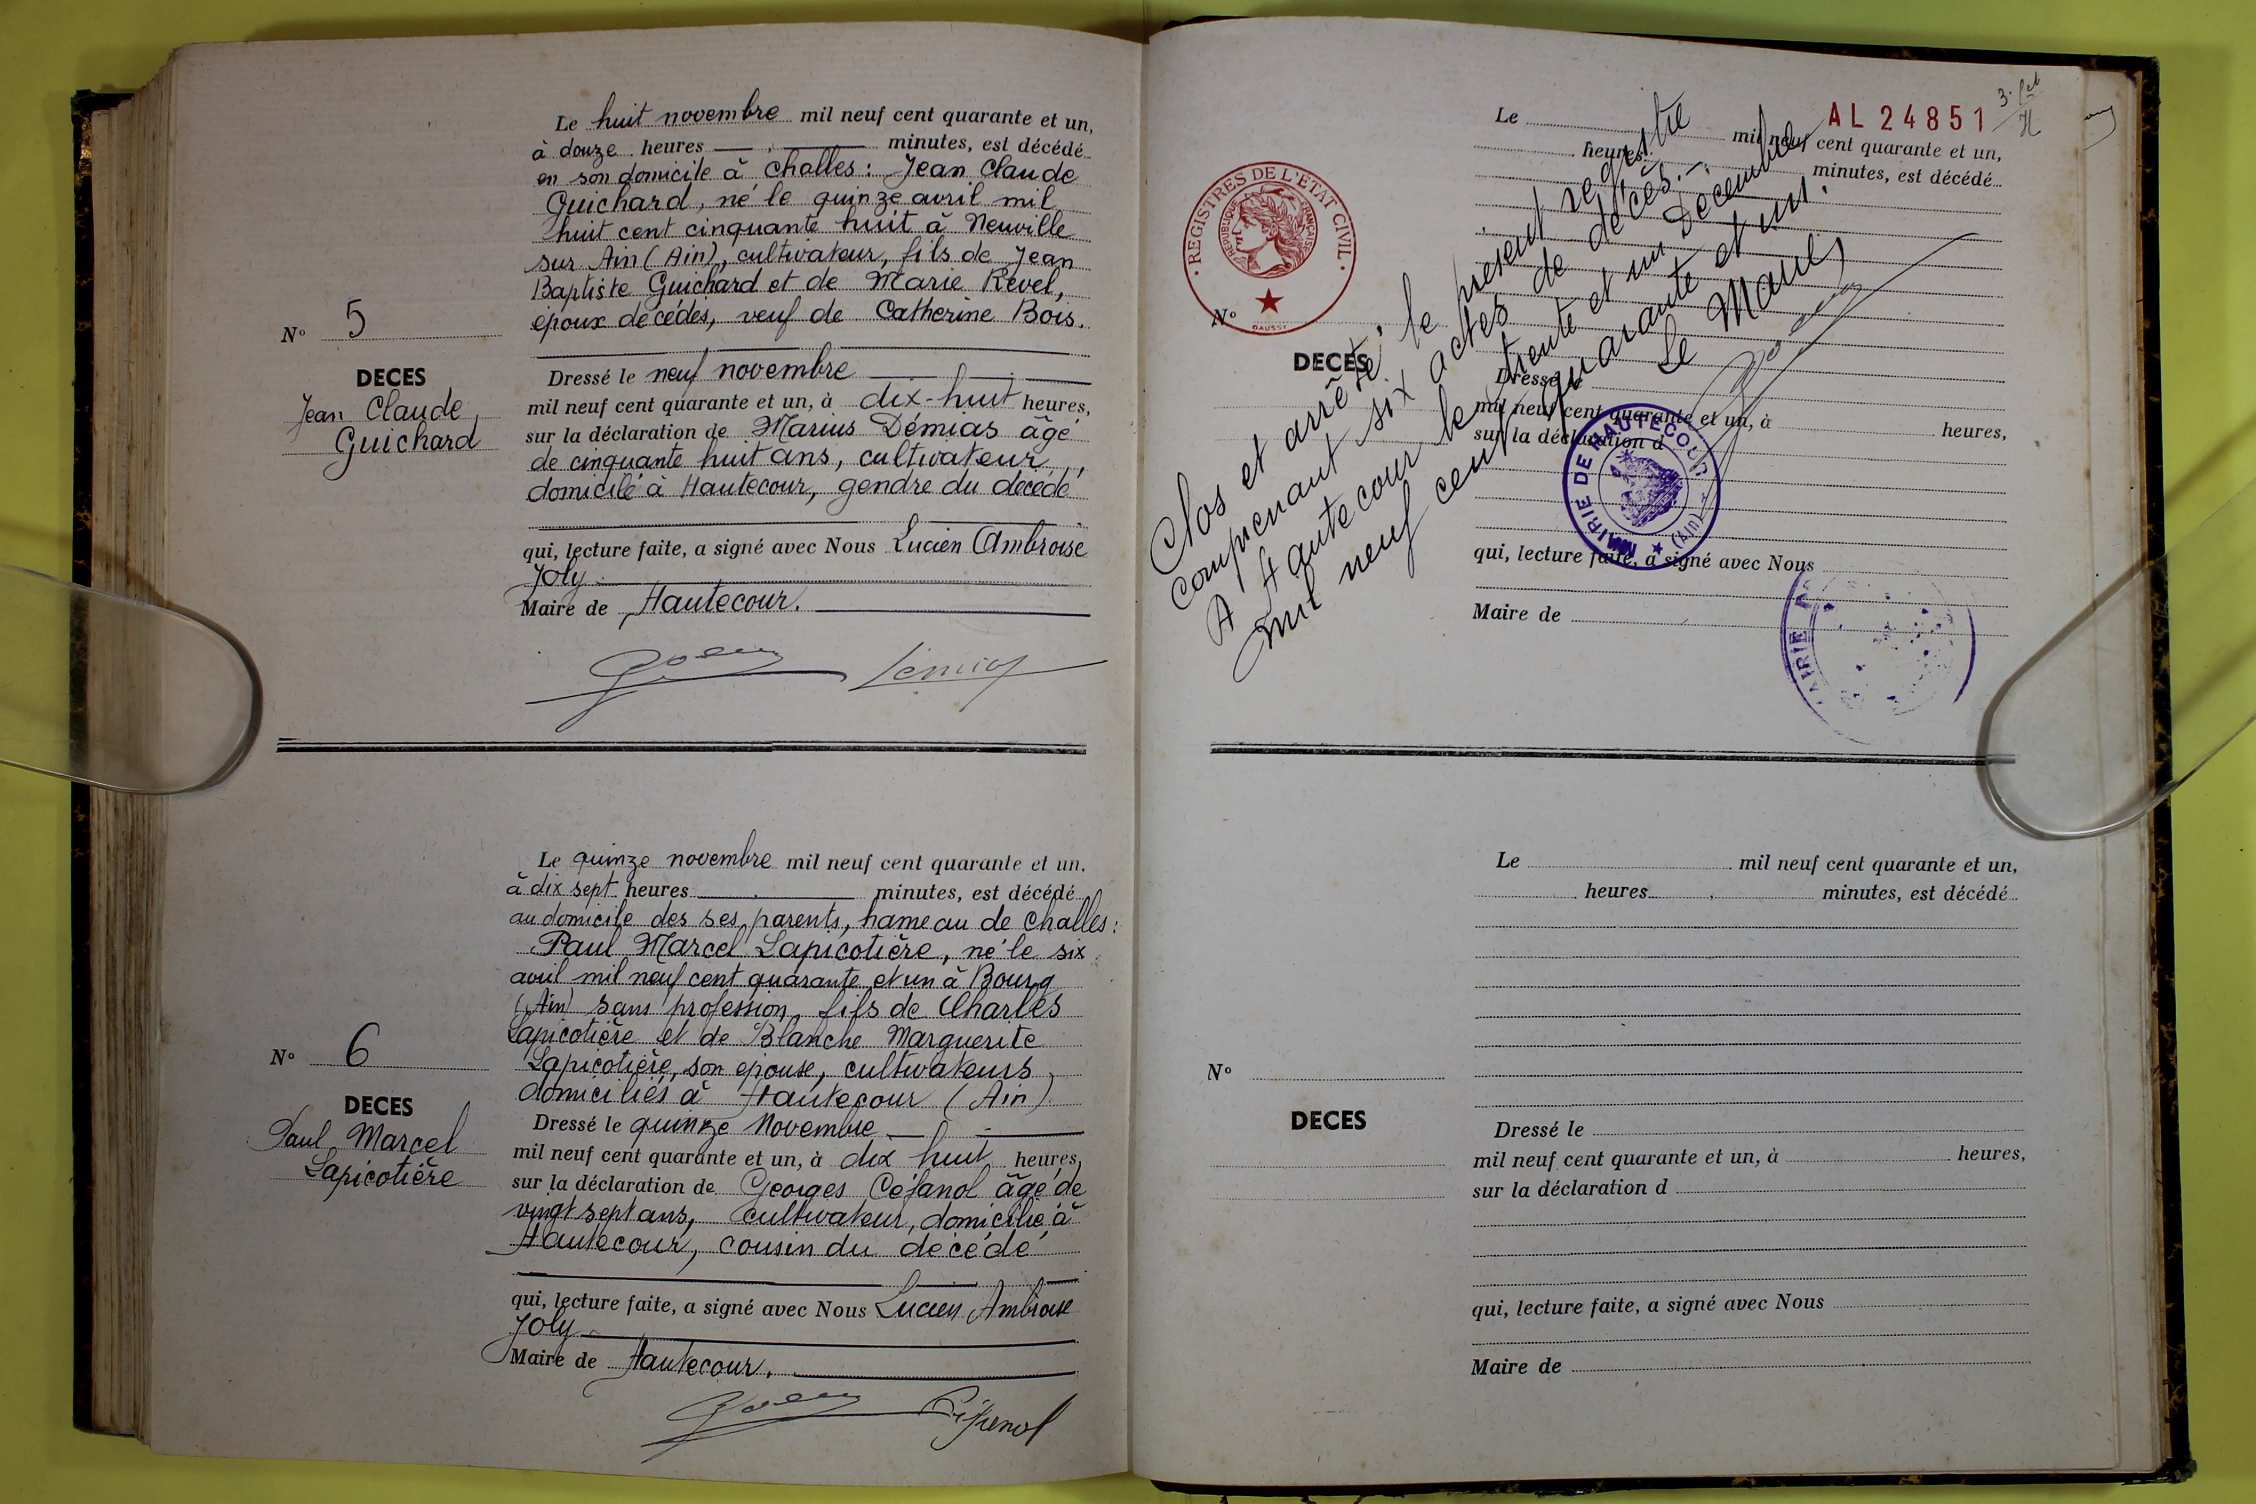 Le huit novembre mil neuf cent quarante et un,
à douze heures minutes, est décédé
en son domicile à Challes : Jean Claude
Guichard, né le quinze avril mil
huit cent cinquante huit à Neuville
sur Ain (Ain), cultivateur, fils de Jean
Baptiste Guichard et de Marie Revel,
époux décédés, veuf de Catherine Bois.
N° 5
DECES
Jean Claude
Guichard
Dressé le neuf novembre
mil neuf cent quarante et un, à dix-huit heures,
sur la déclaration de Marius Démias âgé
de cinquante huit ans, cultivateur,
domicilé à Hautecour, gendre du décédé
qui, lecture faite, a signé avec Nous Lucien Ambroise
Joly
Maire de Hautecour.
Le quinze novembre mil neuf cent quarante et un.
à dix sept heures minutes, est décédé
au domicile des ses parents, hameau de Challes :
Paul Marcel Lapicotière, né le six
avril mil neuf cent quarante et un à Bourg
(Ain) sans profession, fils de Charles
Lapicotière et de Blanche Marguerite
Lapicotière, son épouse, cultivateurs,
domiciliés à Hautecour (Ain)
N° 6
DECES
Paul Marcel
Lapicotière
Dressé le quinze Novembre
mil neuf cent quarante et un, à dix huit heures,
sur la déclaration de Georges âgé de
vingt sept ans, cultivateur, domicilié à
Hautecour, cousin du décédé
qui, lecture faite, a signé avec Nous Lucien Ambroise
Joly
Maire de Hautecour.
AL 24851
Le mil neuf cent quarante et un,
heures minutes, est décédé
REGISTRES DE L'ETAT CIVIL
REPUBLIQUE FRANÇAISE
DAUSSY
N°
DECES
Dressé le
mil neuf cent quarante et un, à heures,
sur la déclaration d
qui, lecture faite, a signé avec Nous
Maire de
Clos et arrêté, le présent registre
comprenant six actes de décès.-
A Hautecour le trente et un Décembre
mil neuf cent quarante et un.
Le Maire,
MAIRIE DE HAUTECOUR
(Ain)
MAIRIE
Le mil neuf cent quarante et un,
heures minutes, est décédé
N°
DECES
Dressé le
mil neuf cent quarante et un, à heures,
sur la déclaration d
qui, lecture faite, a signé avec Nous
Maire de